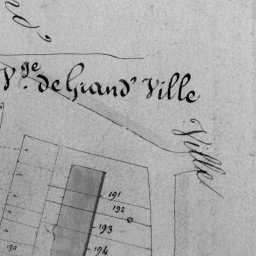 d'
Vge de Grand' Ville
Ville
191
192
193
194